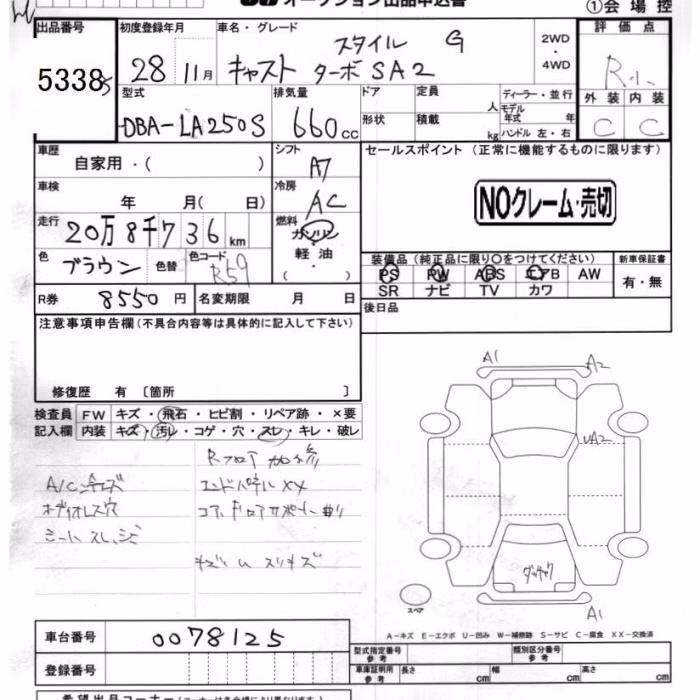 オークション出品申込書
①会場控
出品番号 初度登録年月 車名・グレード 評価点
53385 28 11月 キャスト スタイル G ターボ SA2 2WD・4WD R小
型式 排気量 ドア 定員 人 ディーラー・並行 外装 内装
DBA-LA250S 660cc 形状 積載 kg モデル年式 年 ハンドル 左・右 C C
車歴 自家用・( ) シフト A7 セールスポイント (正常に機能するものに限ります)
車検 年 月( 日) 冷房 AC NOクレーム・売切
走行 20万8千736km 燃料 ガソリン
軽油・( )
色 ブラウン 色替 色コード R59 装備品(純正品に限り○をつけてください) 新車保証書
PS PW ABS エアB AW 有・無
SR ナビ TV カワ
R券 8550円 名変期限 月 日 後日品
注意事項申告欄(不具合内容等は具体的に記入して下さい)
修復歴 有 〔箇所 〕
検査員 FW キズ・飛石・ヒビ割・リペア跡・×要
記入欄 内装 キズ・汚レ・コゲ・穴・スレ・キレ・破レ
A1 A2
UA2
Rフロア
A/C
XX
シート
ダッチャク
スペア
A1
A-キズ E-エクボ U-凹み W-補修跡 S-サビ C-腐食 XX-交換済
車台番号 0078125
登録番号
型式指定番号 参考 類別区分番号 参考
車庫証明用 参考 長さ cm 幅 cm 高さ cm
希望出品コーナー